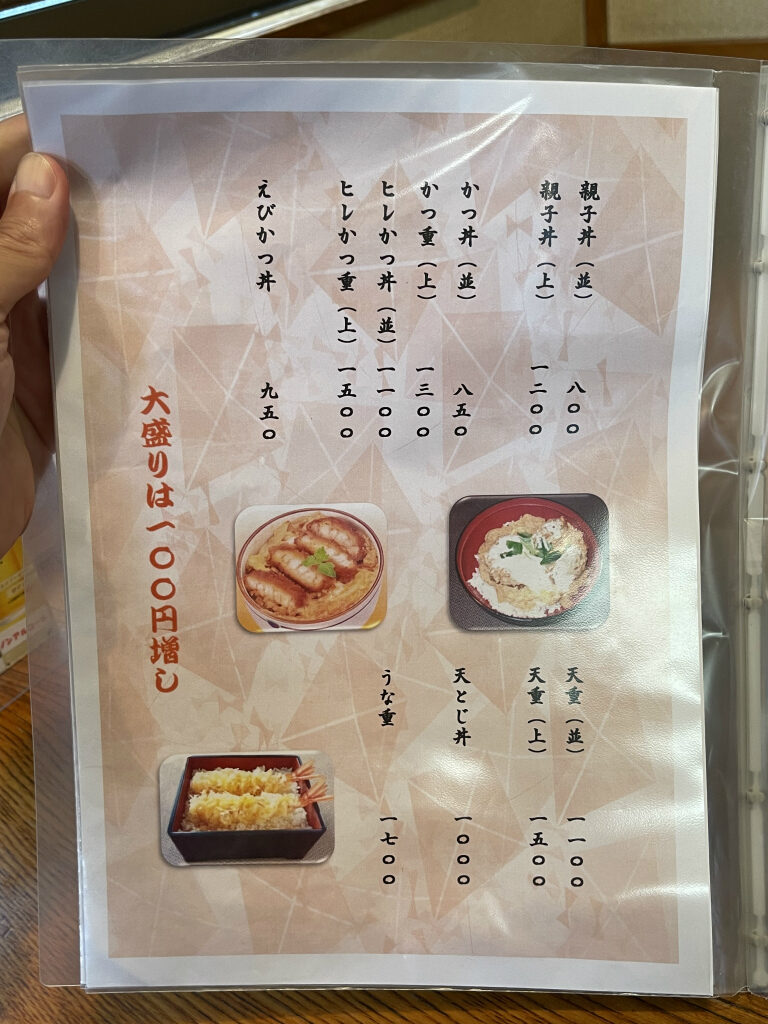 親子丼（並）　八〇〇
親子丼（上）　一二〇〇
かつ丼（並）　八五〇
かつ重（上）　一三〇〇
ヒレかつ丼（並）　一一〇〇
ヒレかつ重（上）　一五〇〇
えびかつ丼　九五〇
天重（並）　一一〇〇
天重（上）　一五〇〇
天とじ丼　一〇〇〇
うな重　一七〇〇
大盛りは一〇〇円増し